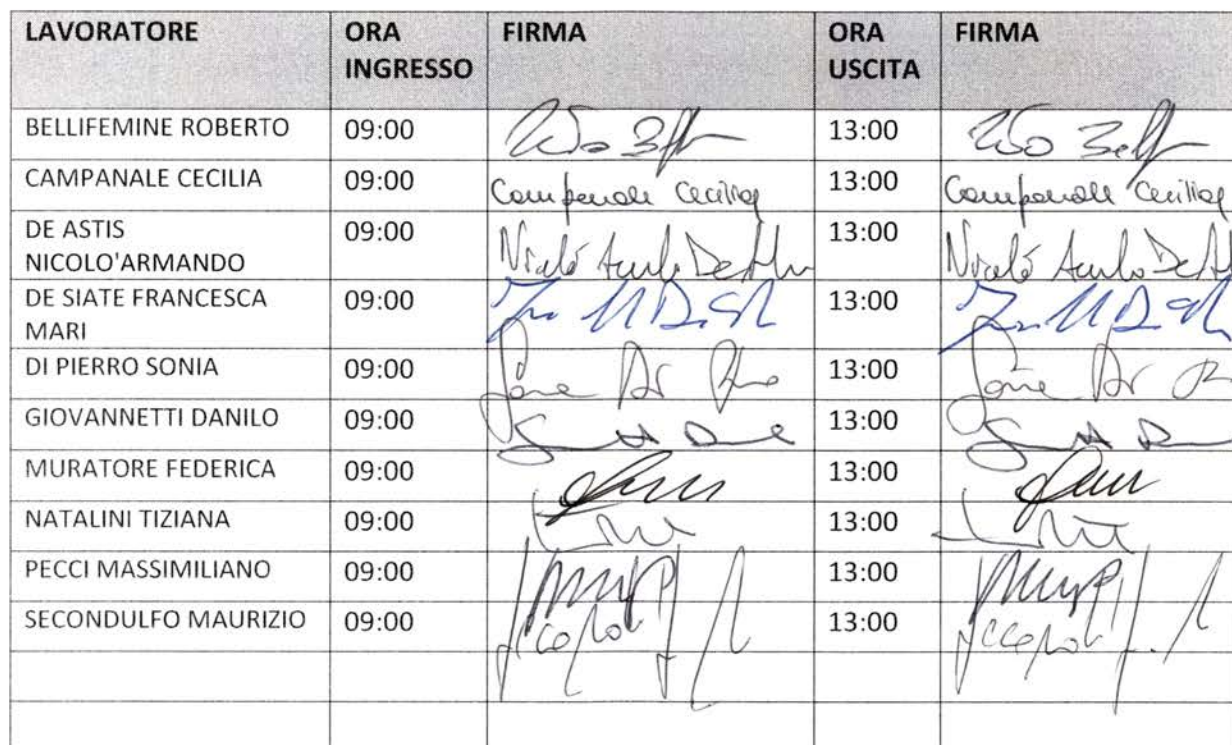 LAVORATORE ORA INGRESSO FIRMA ORA USCITA FIRMA
BELLIFEMINE ROBERTO 09:00 13:00
CAMPANALE CECILIA 09:00 Campanale Cecilia 13:00 Campanale Cecilia
DE ASTIS
NICOLO'ARMANDO 09:00 Nicolò 13:00 Nicolò
DE SIATE FRANCESCA
MARI 09:00 13:00
DI PIERRO SONIA 09:00 13:00
GIOVANNETTI DANILO 09:00 13:00
MURATORE FEDERICA 09:00 13:00
NATALINI TIZIANA 09:00 13:00
PECCI MASSIMILIANO 09:00 13:00
SECONDULFO MAURIZIO 09:00 13:00